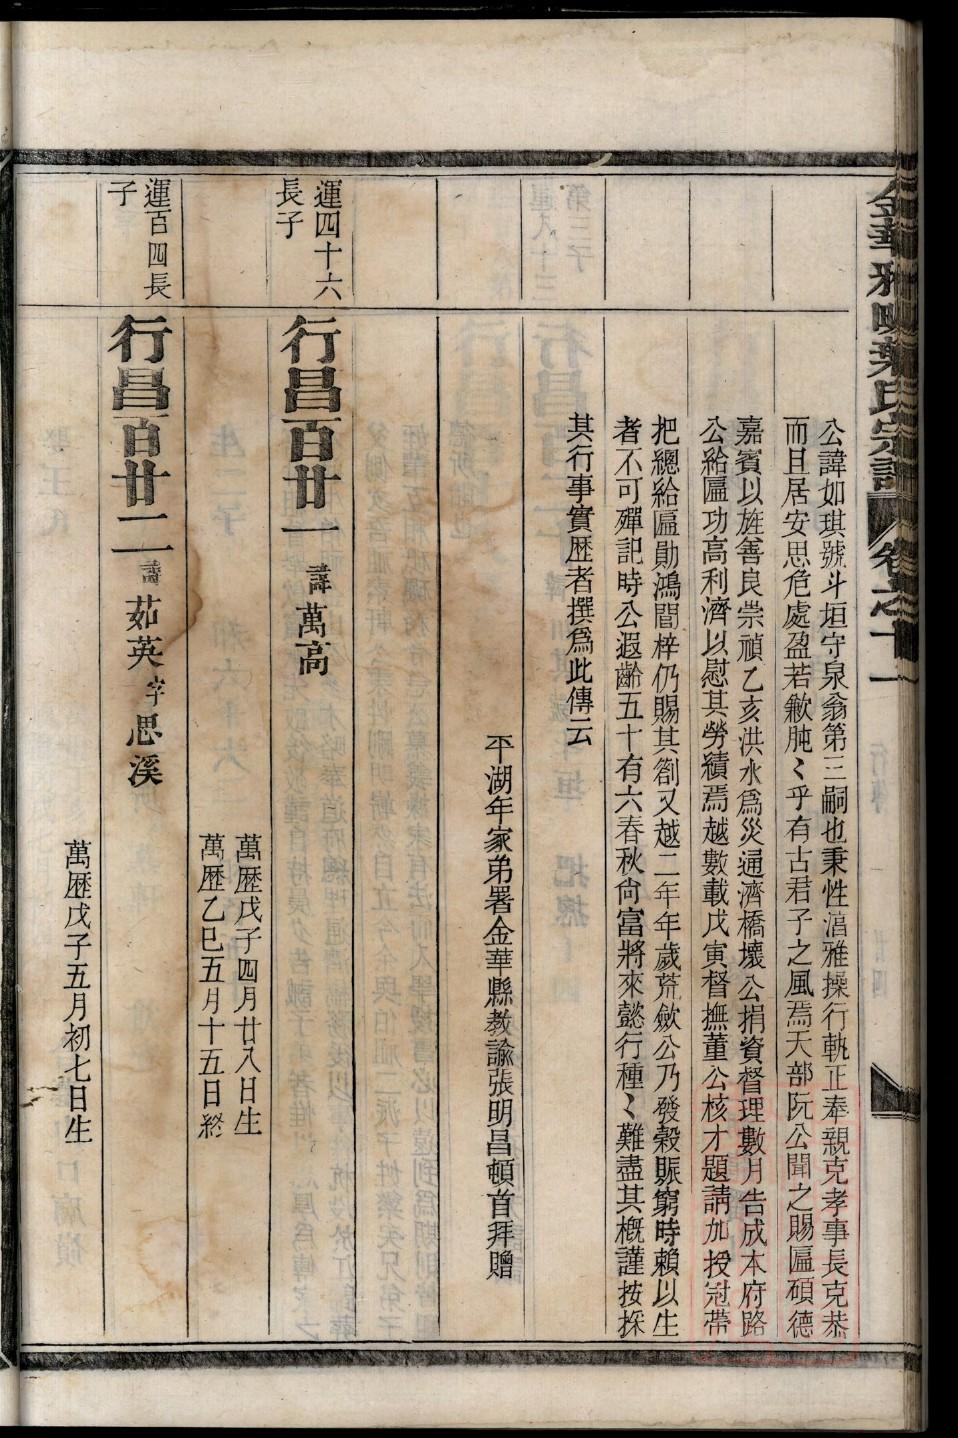 金華雅畈葉氏宗譜 卷之十一
公諱如琪號斗垣守泉翁第三嗣也秉性溫雅操行軌正奉親克孝事長克恭
而且居安思危處盈若歉肫〻乎有古君子之風焉天部阮公聞之賜匾碩德
嘉賓以旌善良崇禎乙亥洪水爲災通濟橋壞公捐資督理數月告成本府路
公給匾功高利濟以慰其勞績焉越數載戊寅督撫董公核才題請加授冠帶
把總給匾勛鴻閭梓仍賜其劄又越二年年歲荒歉公乃發穀賑窮時賴以生
者不可殫記時公遐齡五十有六春秋尙富將來懿行種〻難盡其槪謹按採
其行事實歷者撰爲此傳云
平湖年家弟署金華縣教諭張明昌頓首拜贈
運四十六
長子
行昌百廿一 諱萬高
萬歷戊子四月廿八日生
萬歷乙巳五月十五日終
運百四長
子
行昌百廿二 諱茹英 字思溪
萬歷戊子五月初七日生